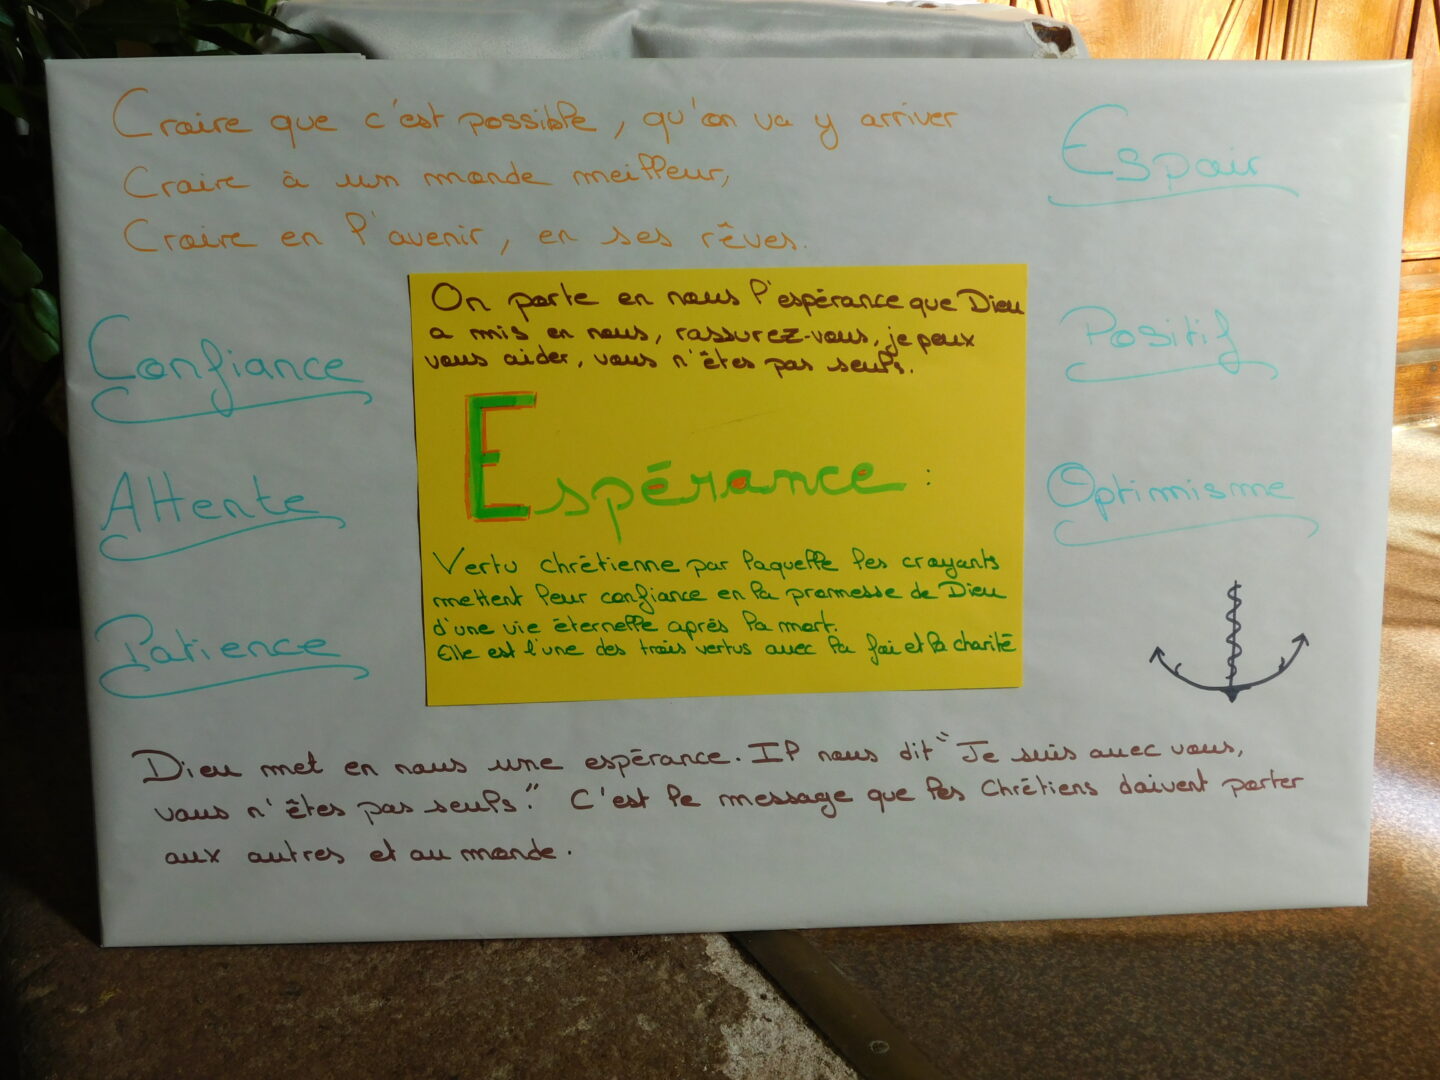 Croire que c'est possible, qu'on va y arriver
Croire à un monde meilleur,
Croire en l'avenir, en ses rêves.
Espoir
Confiance
Positif
Attente
Optimisme
Patience
On porte en nous l'espérance que Dieu
a mis en nous, rassurez-vous, je peux
vous aider, vous n'êtes pas seuls.
Espérance :
Vertu chrétienne par laquelle les croyants
mettent leur confiance en la promesse de Dieu
d'une vie éternelle après la mort.
Elle est l'une des trois vertus avec la foi et la charité
Dieu met en nous une espérance. Il nous dit "Je suis avec vous,
vous n'êtes pas seuls." C'est le message que les Chrétiens doivent porter
aux autres et au monde.